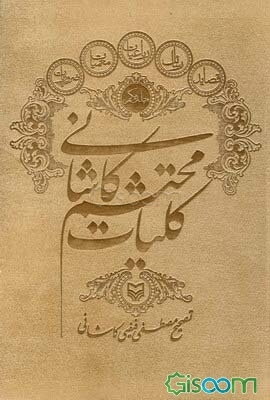 قصاید
جلد یکم
کلیات محتشم کاشانی
تصحیح مصطفی فیضی کاشانی
Gisoom
.com